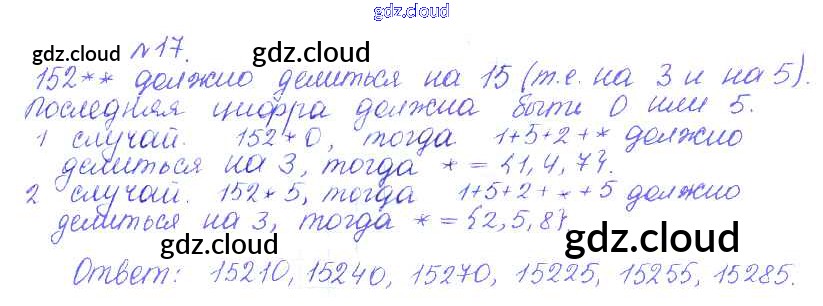 gdz.cloud
gdz.cloud №17. gdz.cloud
152** должно делиться на 15 (т.е. на 3 и на 5).
Последняя цифра должна быть 0 или 5.
1 случай. 152*0, тогда 1+5+2+* должно
делиться на 3, тогда * = {1,4,7}.
2 случай. 152*5, тогда 1+5+2+*+5 должно
делиться на 3, тогда * = {2,5,8}
gdz.cloud gdz.cloud
Ответ: 15210, 15240, 15270, 15225, 15255, 15285.